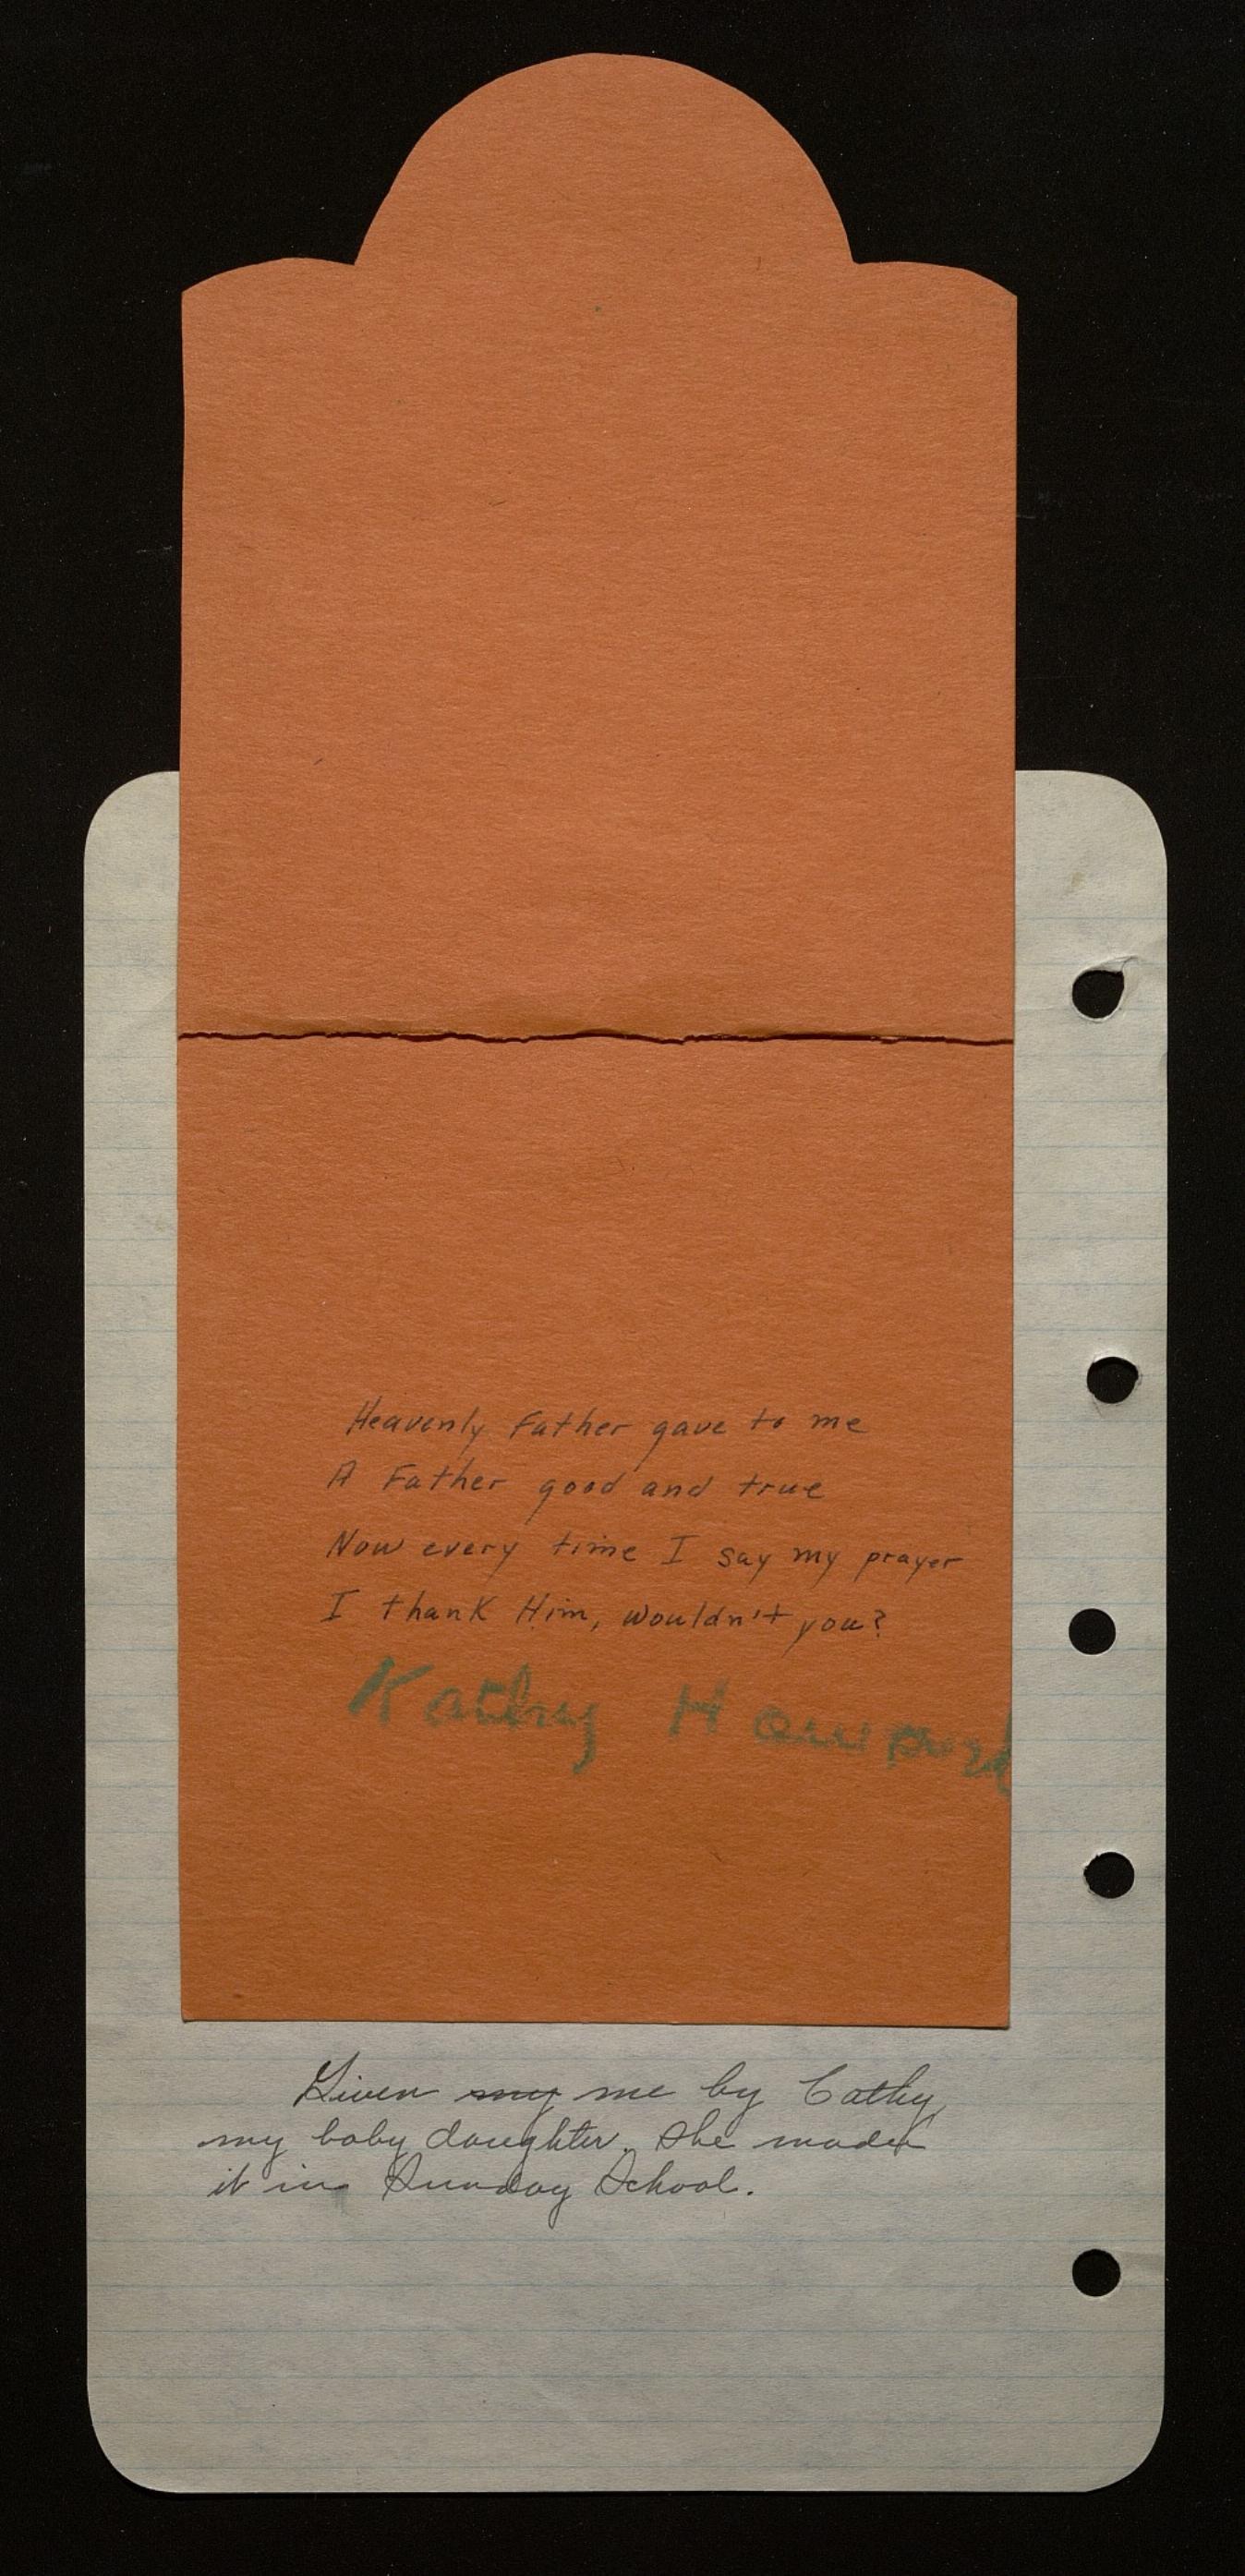 Heavenly Father gave to me
A Father good and true
Now every time I say my prayer
I thank Him, wouldn't you?
Kathy Howard
Given my me by Cathy,
my baby daughter. She made
it in Sunday School.